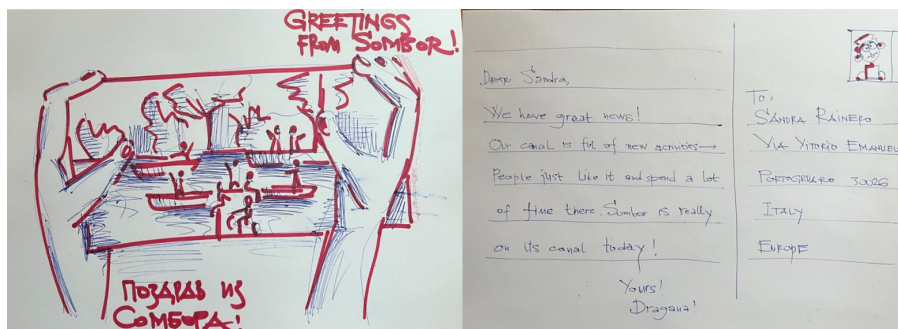 GREETINGS
FROM SOMBOR!
ПОЗДРАВ ИЗ
СОМБОРА!
Dear Sandra,
We have great news!
Our canal is ful of new activities→
People just like it and spend a lot
of time there. Sombor is really
on its canal today!
Yours!
Dragana!
To:
SANDRA RAINERO
VIA VITORIO EMANUEL
PORTOGRUARO 30026
ITALY
EUROPE